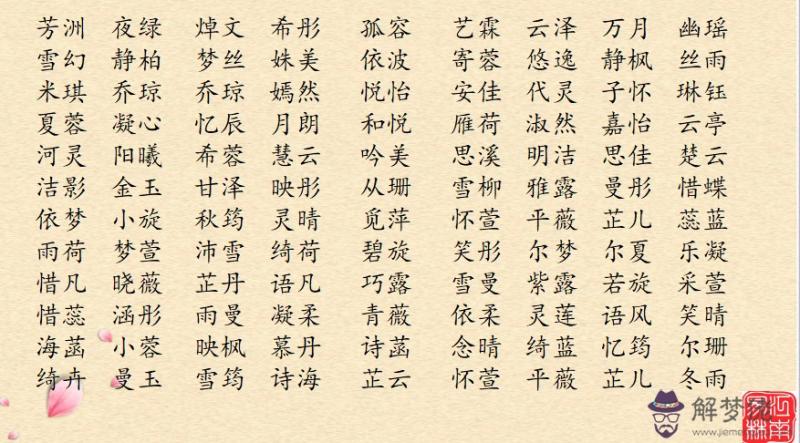 芳洲 夜绿 焯文 希彤 孤容 艺霖 云泽 万月 幽瑶
雪幻 静柏 梦丝 姝美 依波 寄蓉 悠逸 静枫 丝雨
米琪 乔琼 乔琼 嫣然 悦怡 安佳 代灵 子怀 琳钰
夏蓉 凝心 忆辰 月朗 和悦 雁荷 淑然 嘉怡 云亭
河灵 阳曦 希蓉 慧云 吟美 思溪 明洁 思佳 楚云
洁影 金玉 甘泽 映彤 从珊 雪柳 雅露 曼彤 惜蝶
依梦 小旋 秋筠 灵晴 觅萍 怀萱 平薇 芷儿 蕊蓝
雨荷 梦萱 沛雪 绮荷 碧旋 笑彤 尔梦 尔夏 乐凝
惜凡 晓薇 芷丹 语凡 巧露 雪曼 紫露 若旋 采萱
惜蕊 涵彤 雨曼 凝柔 青薇 依柔 灵莲 语风 笑晴
海菡 小蓉 映枫 慕丹 诗菡 念晴 绮蓝 忆筠 尔珊
绮卉 曼玉 雪筠 诗海 芷云 怀萱 平薇 芷儿 冬雨